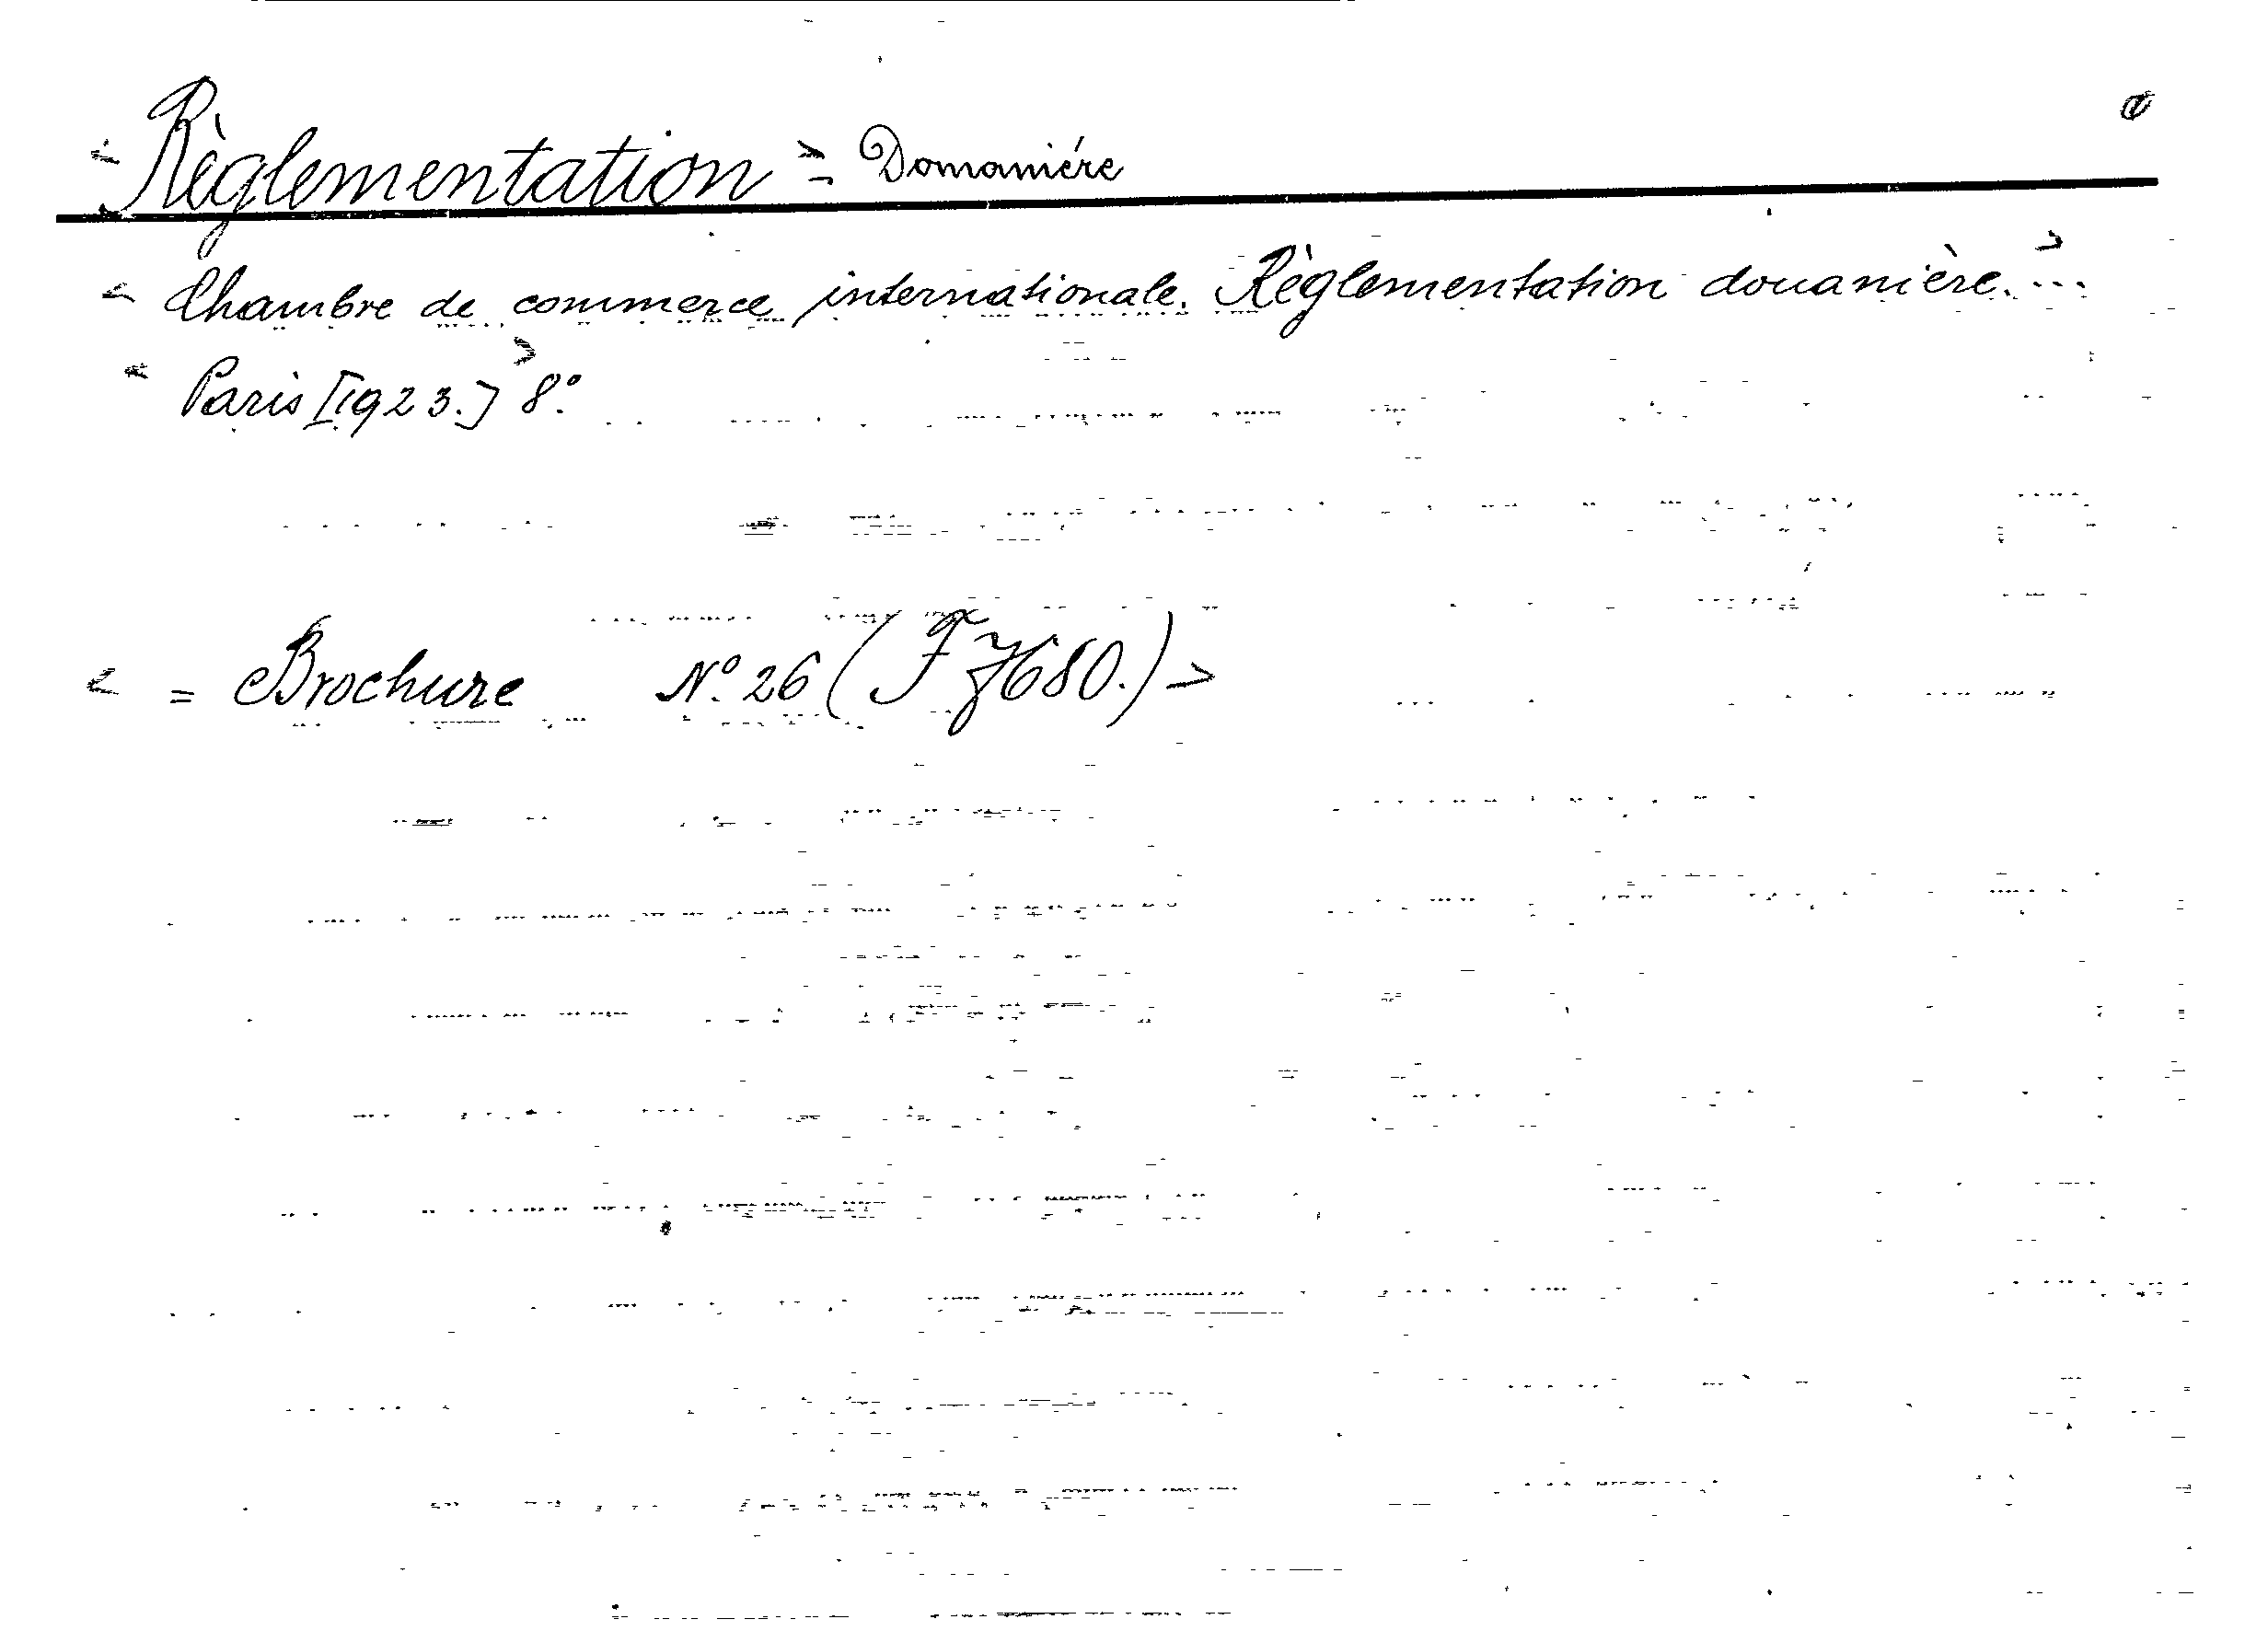 < Règlementation > = Domaniére
< Chambre de commerce internationale. Règlementation douanière. > ...
< Paris [1923.] > 8°.
< = Brochure N° 26 (F 7680.) >